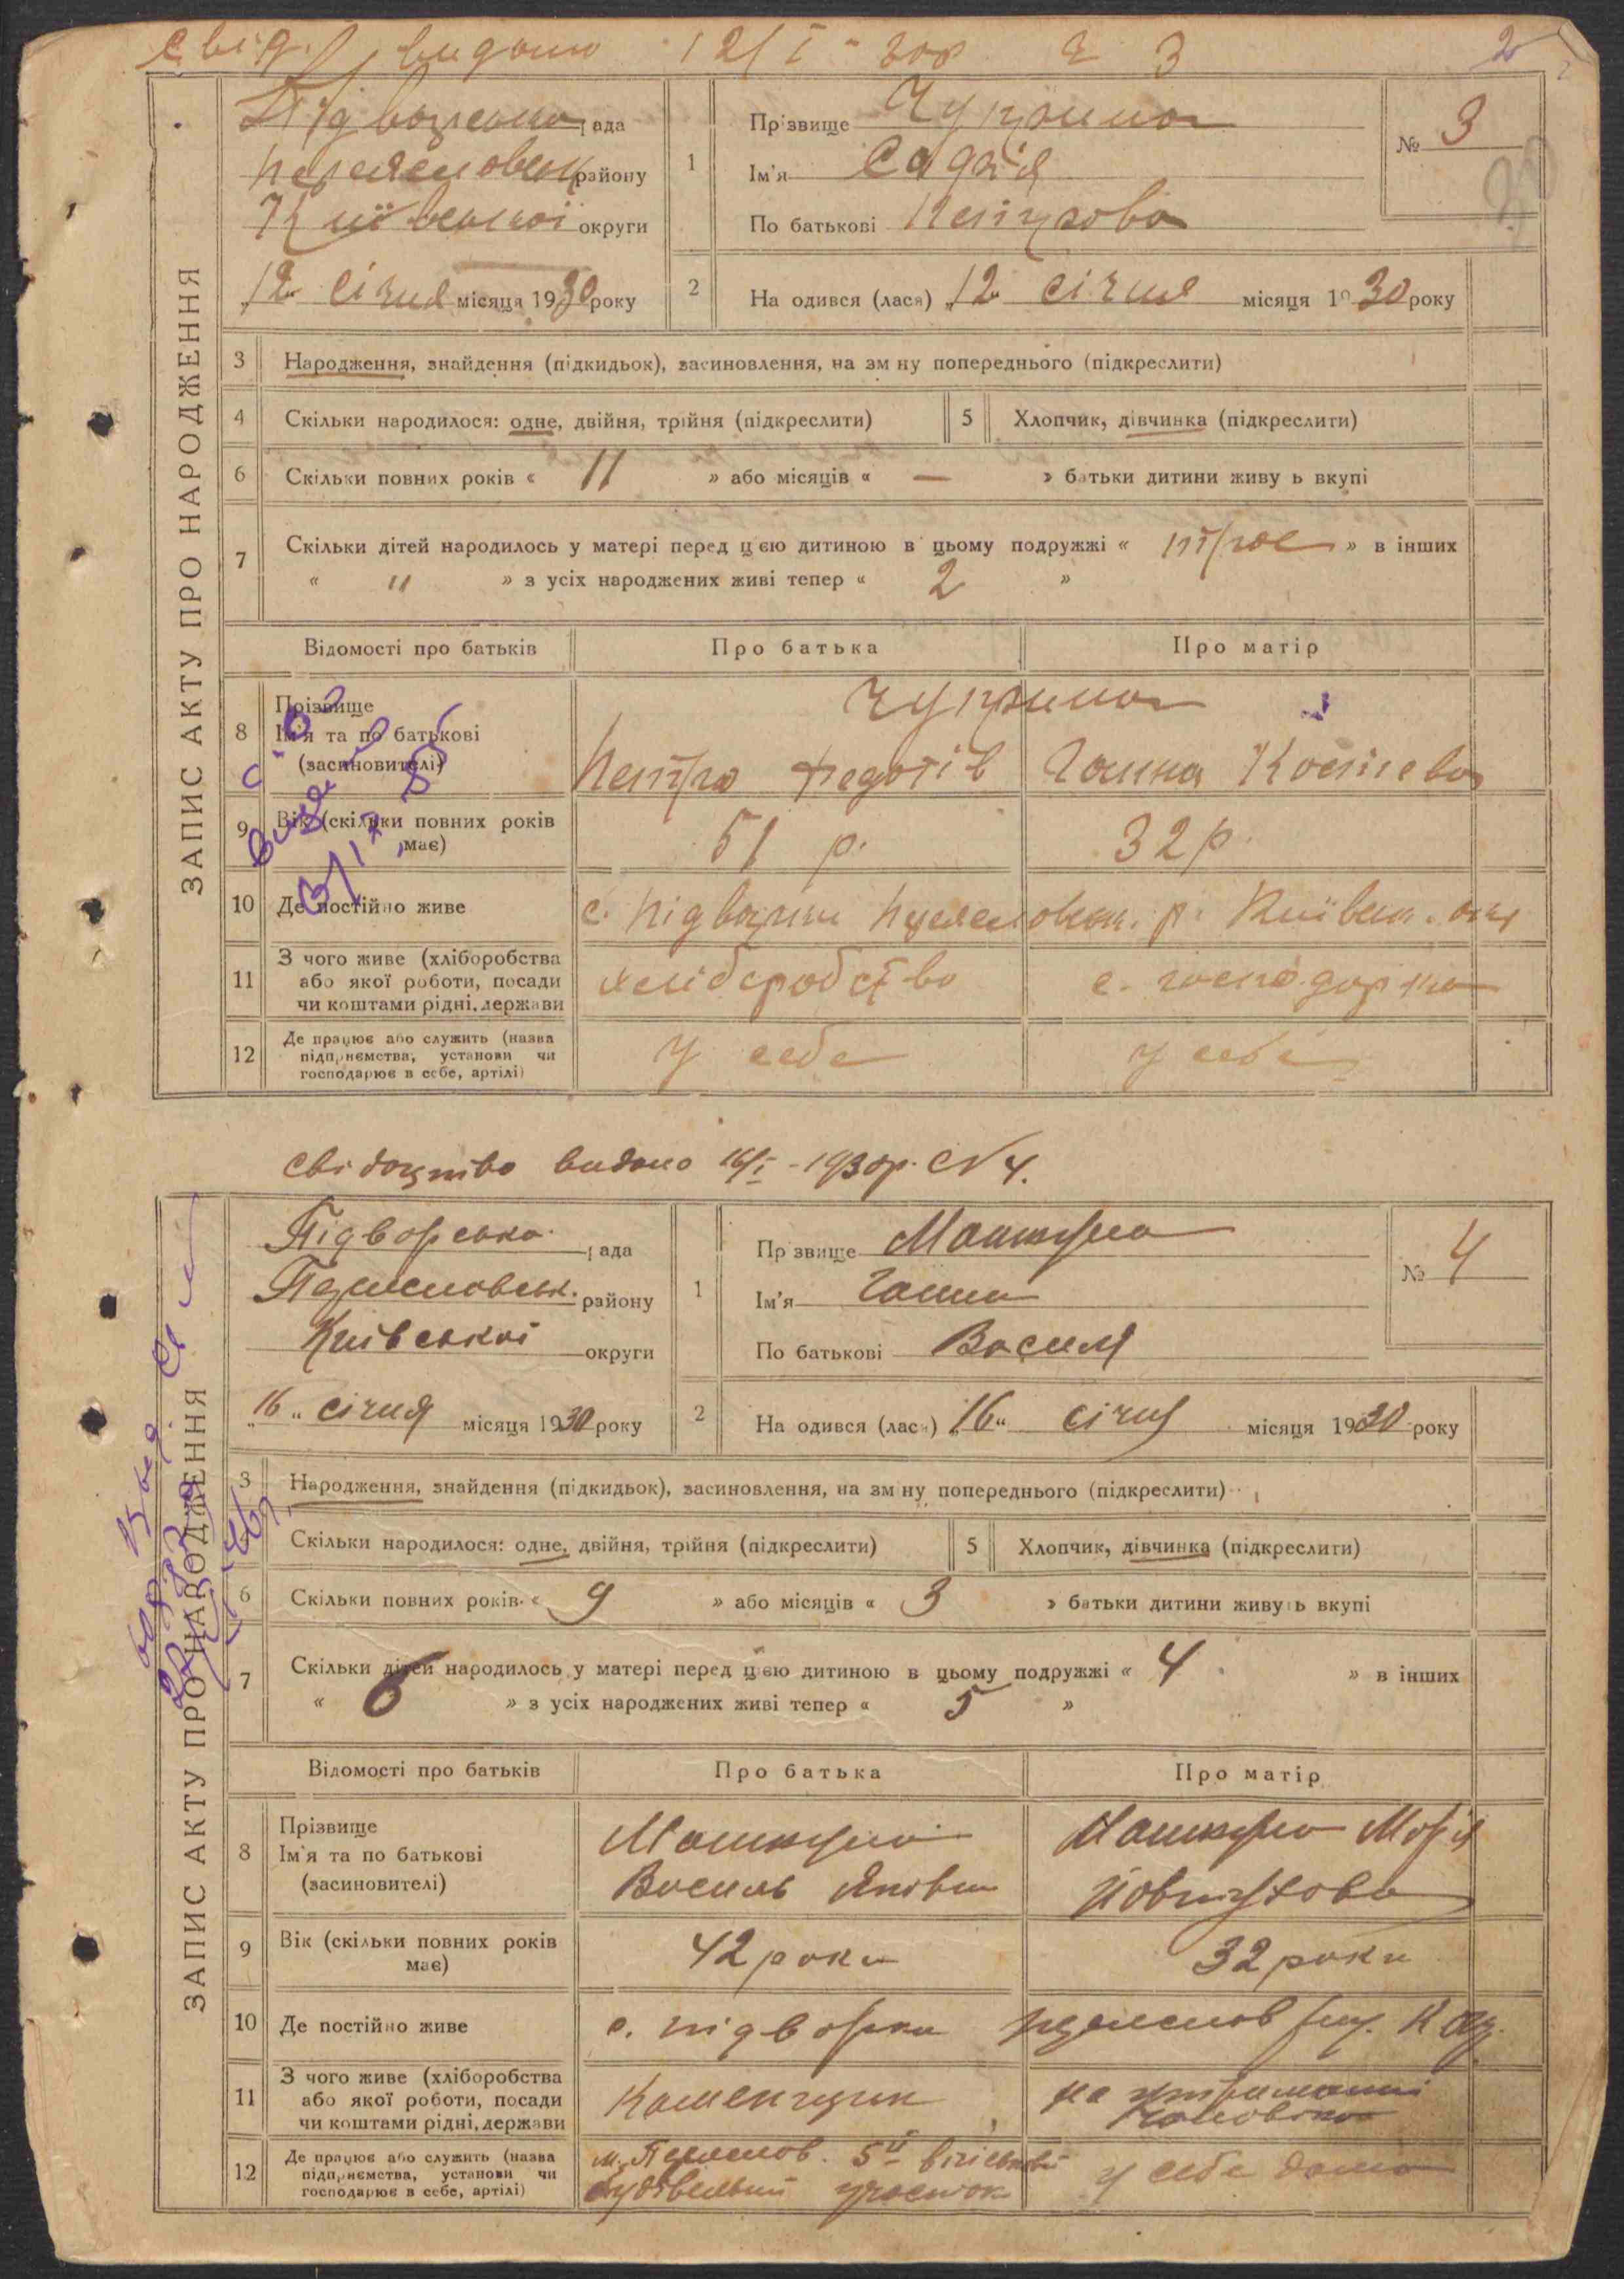 свід. видано 12/I - 30р. Ч 3
2
ЗАПИС АКТУ ПРО НАРОДЖЕННЯ
рада
району
Київської округи
12 січня місяця 1930 року
1
Прізвище Чуприна
Ім'я Софія
По батькові Петрова
№ 3
2
На одився (лася) „12 січня місяця 1930 року
3 Народження, знайдення (підкидьок), засиновлення, на зм ну попереднього (підкреслити)
4 Скільки народилося: одне, двійня, трійня (підкреслити)
5 Хлопчик, дівчинка (підкреслити)
6 Скільки повних років « 11 » або місяців « — » батьки дитини живу ь вкупі
7 Скільки дітей народилось у матері перед цією дитиною в цьому подружжі « троє » в інших
« 11 » з усіх народжених живі тепер « 2 »
Відомості про батьків
Про батька
Про матір
8 Прізвище
Ім'я та по батькові
(засиновителі)
Чуприна
Петро Федотів
Ганна Костєва
9 Вік (скільки повних років має)
51 р.
32 р.
10 Де постійно живе
с. Підварки Переясловськ. р. Київськ. окр
11 З чого живе (хліборобства
або якої роботи, посади
чи коштами рідні, держави
хліборобство
с. господарка
12 Де працює або служить (назва
підприємства, установи чи
господарює в себе, артілі)
У себе
у себе
Свідоцтво видано 16/I - 1930р. № 4.
ЗАПИС АКТУ ПРО НАРОДЖЕННЯ
Підворська рада
Переясловськ. району
Київської округи
„16" січня місяця 1930 року
1
Пр звище Машкура
Ім'я Ганна
По батькові Василя
№ 4
2
На одився (лася) „16" січня місяця 1930 року
3 Народження, знайдення (підкидьок), засиновлення, на зміну попереднього (підкреслити)
Скільки народилося: одне, двійня, трійня (підкреслити)
5 Хлопчик, дівчинка (підкреслити)
6 Скільки повних років « 9 » або місяців « 3 » батьки дитини живуть вкупі
7 Скільки дітей народилось у матері перед цією дитиною в цьому подружжі « 4 » в інших
« 6 » з усіх народжених живі тепер « 5 »
Відомості про батьків
Про батька
Про матір
8 Прізвище
Ім'я та по батькові
(засиновителі)
Машкура
Василь Яковів
Машкура Марія
9 Вік (скільки повних років має)
42 роки
32 роки
10 Де постійно живе
с. підворки
11 З чого живе (хліборобства
або якої роботи, посади
чи коштами рідні, держави
Каменщик
на утриманні
чоловіка
12 Де працює або служить (назва
підприємства, установи чи
господарює в себе, артілі)
м. Переяслов. 5й
будівельний участок
у себе дома